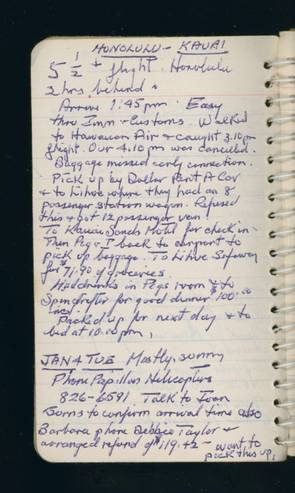 HONOLULU - KAUAI
5 1/2 + flight. Honolulu
2 hrs behind.
Arrive 1:45 pm. Easy
thru Imm + Customs. Walked
to Hawaiian Air + caught 3.10 pm
flight. Our 4.10 pm was cancelled.
Baggage missed early connection.
Pick up by Dollar Rent A Car
+ to Lihue where they had an 8
passenger station wagon. Refused
this + got 12 passenger van
To Kauai Sands Motel for check in.
Then Peg + I back to airport to
pick up baggage. To Lihue Safeway
for $71.90 of groceries.
Had drinks in Pegs room + to
Spindrifter for good dinner 100.00
Packed up for next day + to
bed at 10.00 pm.
JAN 4 TUE Mostly sunny
Phone Papillon Helicopters
826-6591. Talk to Joan
to confirm arrival time also
Barbara phone Debbie Taylor +
arranged refund of $119.42 - want to
pick this up.